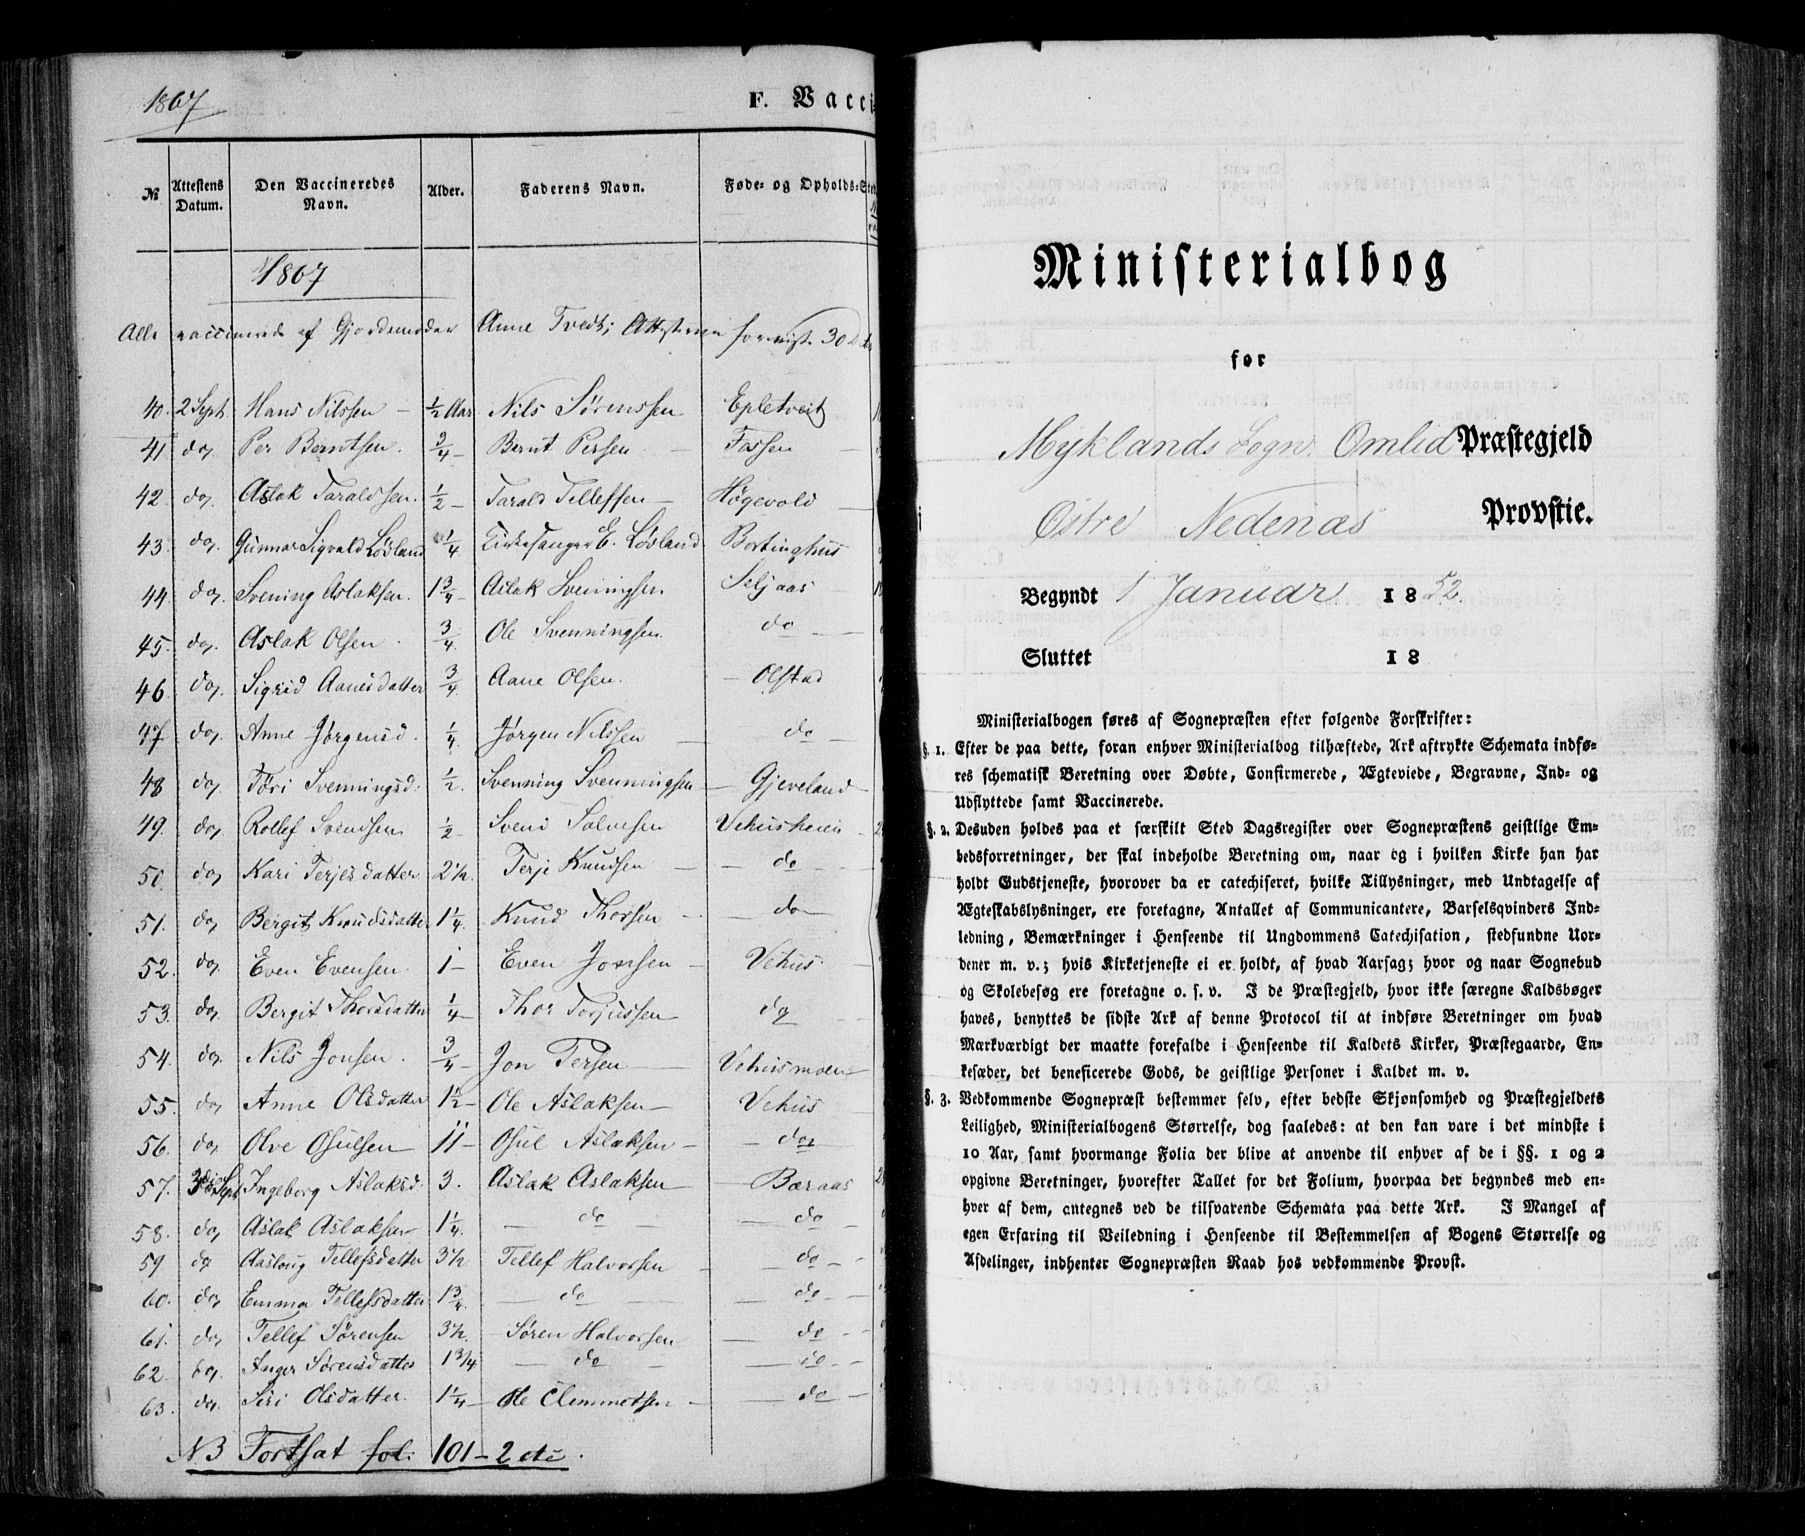 1867
F. Vacci-
№ Attestens Datum. Den Vaccineredes Navn. Alder. Faderens Navn. Føde- og Opholds-Sted
1867
Alle vaccinerede af Gjordemoder Anne Tveit; Attesterne forevist 30
40. 2 Sept. Hans Nilssen - ½ Aar Nils Sørenssen Epletveit
41 do. Per Berntsen. ¾ - Bernt Persen - Fossen -
42 do. Aslak Taraldsen. ½ - Tarald Tellefsen - Høgevold -
43. do. Gunnar Sigvald Lövland ¼. Kirkesanger E. Lövland Bortinghus
44. do. Svening Aslaksen. 1¾ - Aslak Sveningsen Seljaas
45. do. Aslak Olsen. ¾. Ole Svenningsen do -
46. do. Sigrid Aanesdatter ¾. Aane Olsen. - Olstad
47. do. Anne Jørgensd. ¼. Jørgen Nilssen - do
48 do. Töri Svenningsd. ½. Svenning Svenningsen - Gjeveland -
49. do. Rollef Svendsen ½ Svend Salvesen Vehusheien -
50. do. Kari Terjesdatter 2½. Terje Knudsen - - do -
51. do. Bergit Knudsdatter 1¼. Knud Thorsen - do -
52. do. Even Evensen. 1 - Even Jonsen - Vehus.
53. do. Bergit Thorsdatter ¼ - Thor Torjussen - do
54. do. Nils Jonsen. ¾ - Jon Tersen - Vehusmoen
55. do. Anne Olsdatter 1½ - Ole Aslaksen - Vehus
56. do. Olve Osulsen 11 - Osul Aslaksen - do
57. 3die Sept Ingeborg Aslaksd. 3. Aslak Aslaksen - Børaas
58. do. Aslak Aslaksen 1¼. - do - do
59 do Aaslaug Tellefsdatter 3½ Tellef Halvorsen - do -
60. do. Emma Tellefsdatter 1¾. - do - - do -
61. do. Tellef Sørensen 3½. - Søren Halvorsen - do -
62. do. Inger Sørensdatter 1¾ - do - - do -
63. do. Siri Olsdatter. 1¼ - Ole Clemmetsen - - do
NB Fortsat fol: 101 - 2 etc.
Ministerialbog
for
Myklands Sogn. Omlid Præstegjeld
Östre Nedenæs Provstie.
Begyndt 1 Januar. 1852.
Sluttet 18
Ministerialbogen føres af Sognepræsten efter følgende Forskrifter:
§. 1. Efter de paa dette, foran enhver Ministerialbog tilhæftede, Ark aftrykte Schemata indfø-
res schematisk Beretning over Døbte, Confirmerede, Ægteviede, Begravne, Ind- og
Udflyttede samt Vaccinerede.
§. 2. Desuden holdes paa et særskilt Sted Dagsregister over Sognepræstens geistlige Em-
bedsforretninger, der skal indeholde Beretning om, naar og i hvilken Kirke han har
holdt Gudstjeneste, hvorover da er catechiseret, hvilke Tillysninger, med Undtagelse af
Ægteskabslysninger, ere foretagne, Antallet af Communicantere, Barselsqvinders Ind-
ledning, Bemærkninger i Henseende til Ungdommens Catechisation, stedfundne Uor-
dener m. v.; hvis Kirketjeneste ei er holdt, af hvad Aarsag; hvor og naar Sognebud
og Skolebesøg ere foretagne o. s. v. I de Præstegjeld, hvor ikke særegne Kaldsbøger
haves, benyttes de sidste Ark af denne Protocol til at indføre Beretninger om hvad
Mærkværdigt der maatte forefalde i Henseende til Kaldets Kirker, Præstegaarde, En-
kesæder, det beneficerede Gods, de geistlige Personer i Kaldet m. v.
§. 3. Vedkommende Sognepræst bestemmer selv, efter bedste Skjønsomhed og Præstegjeldets
Leilighed, Ministerialbogens Størrelse, dog saaledes: at den kan vare i det mindste i
10 Aar, samt hvormange Folia der blive at anvende til enhver af de i §§. 1 og 2
opgivne Beretninger, hvorefter Tallet for det Folium, hvorpaa der begyndes med en-
hver af dem, antegnes ved de tilsvarende Schemata paa dette Ark. I Mangel af
egen Erfaring til Veiledning i Henseende til Bestemmelsen af Bogens Størrelse og
Afdelinger, indhenter Sognepræsten Raad hos vedkommende Provst.